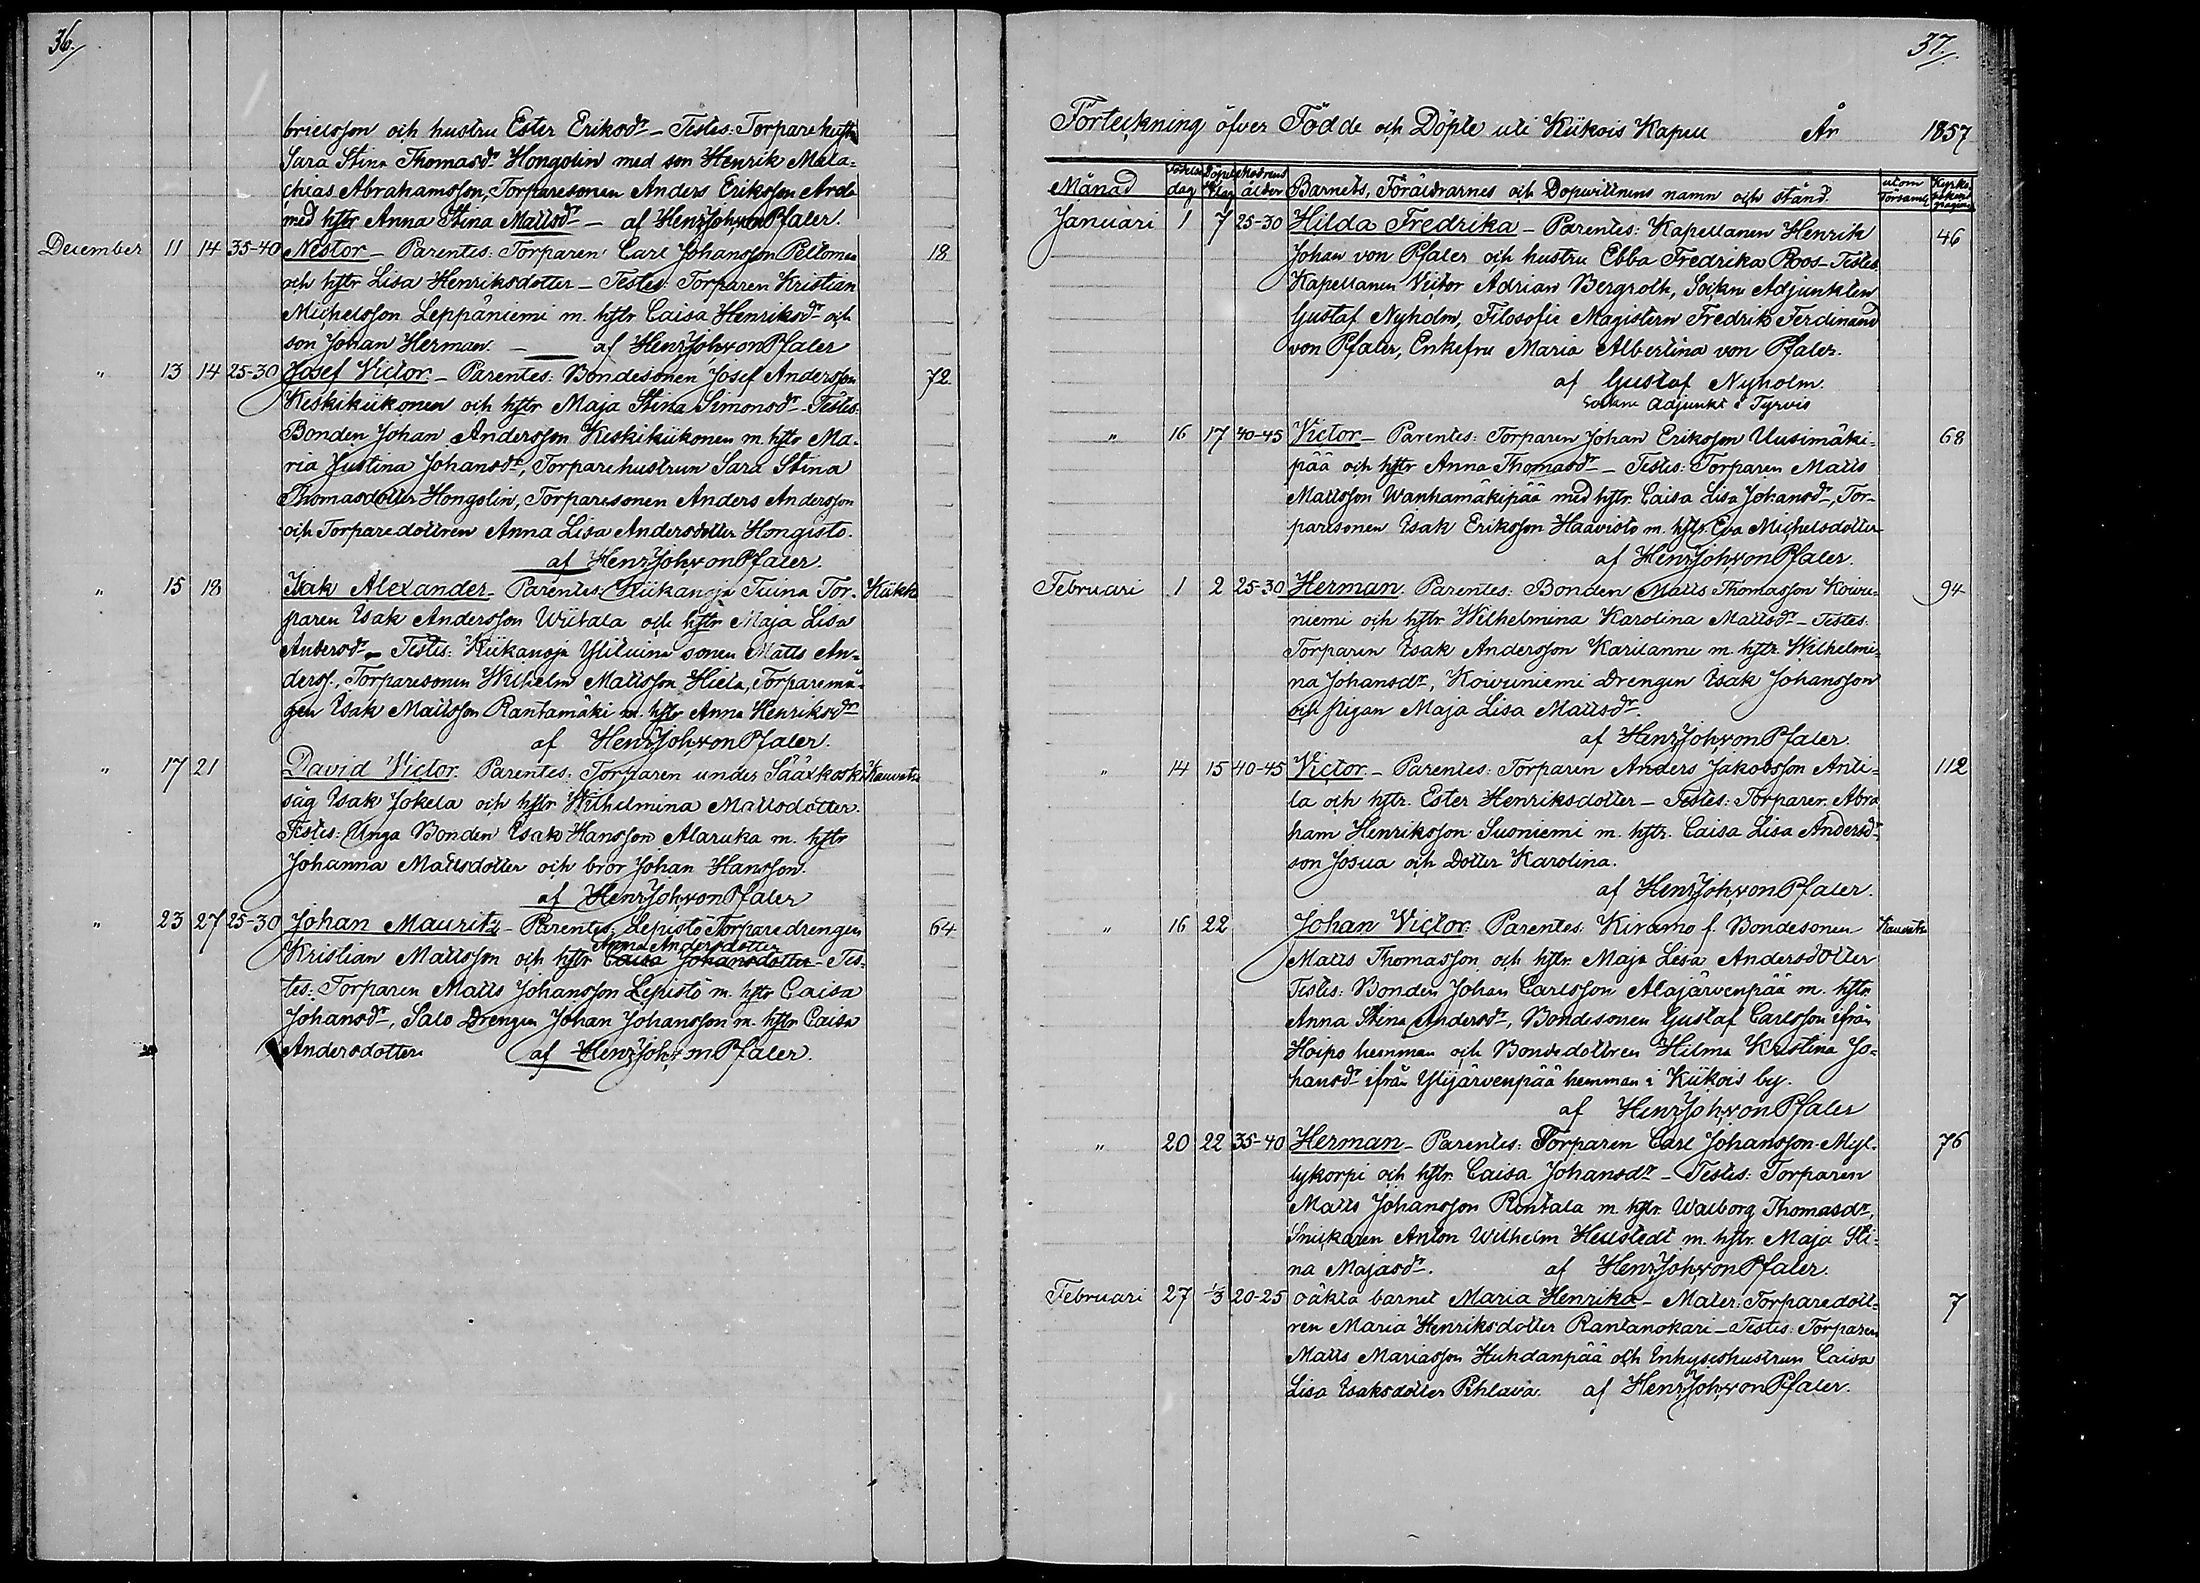 36.
brielsson och hustru Ester Eriksdr – Testes: Torpare hustr
Sara Stina Thomasdr Hongolin med son Henrik Mala-
chias Abrahamsson, Torparesonen Anders Eriksson
med hstr Anna Stina Mattsdr – af HenrJohvonPfaler.
December 11 14 35-40 Nestor – Parentes: Torparen Carl Johansson Peltomaa 18
och hstr Lisa Henriksdotter – Testes: Torparen Kristian
Michelsson Leppäniemi m. hstr Caisa Henriksdr och
son Johan Herman. – af HenrJohvonPfaler
" 13 14 25-30 Josef Victor – Parentes: Bondesonen Josef Andersson 72
Keskikiikonen och hstr Maja Stina Simonsdr – Testes:
Bonden Johan Andersson Keskikiikonen m. hstr Ma-
ria Justina Johansdr, Torparehustrun Sara Stina
Thomasdotter Hongolin, Torparesonen Anders Andersson
och Torparedottren Anna Lisa Andersdotter Hongisto.
af HenrJohvonPfaler.
" 15 18 Isak Alexander – Parentes: Kiikanoja Tuina Tor- Kiikka
paren Isak Andersson Wiitala och hstr Maja Lisa
Andersdr – Testes: Kiikanoja Ylituina sonen Matts An-
derss., Torparesonen Wilhelm Mattsson Hiela, Torparemå-
gen Isak Mattsson Rantamäki m. hstr Anna Henriksdr
af HenrJohvonPfaler.
" 17 21 David Victor. Parentes: Torparen under Sääxkoski Kauvatsa
såg Isak Jokela och hstr Wilhelmina Mattsdotter.
Testes: Unga Bonden Isak Hansson Alaruka m. hstr
Johanna Mattsdotter och bror Johan Hansson.
af HenrJohvonPfaler
" 23 27 25-30 Johan Mauritz – Parentes: Lepistö Torparedrengen 64
Anna Andersdotter
Kristian Mattsson och hstr Caisa Johansdotter – Tes-
tes: Torparen Matts Johansson Lepistö m. hstr Caisa
Johansdr, Salo Drengen Johan Johansson m. hstr Caisa
Andersdotter af HenrJohvonPfaler.
37.
Förteckning öfver Födde och Döpte uti Kiikois Kapell År 1857
Månad Födelse dag Döpelse dag Modrens ålder Barnets, Föräldrarnes och Dopwittnens namn och stånd. utom Församl. Kyrko bokens pagina
Januari 1 7 25-30 Hilda Fredrika – Parentes: Kapellanen Henrik 46
Johan von Pfaler och hustru Ebba Fredrika Roos – Testes
Kapellanen Victor Adrian Bergroth, Sockne Adjunkten
Gustaf Nyholm, Filosofie Magistern Fredrik Ferdinand
von Pfaler, Enkefru Maria Albertina von Pfaler.
af Gustaf Nyholm.
Sockne Adjunkt i Tyrvis
" 16 17 40-45 Victor – Parentes: Torparen Johan Eriksson Uusimäki- 68
pää och hstr Anna Thomasdr – Testes: Torparen Matts
Mattsson Wanhamäkipää med hstr. Caisa Lisa Johansdr, Tor-
paresonen Isak Eriksson Haavisto m. hstr. Eva Michelsdotter
af HenrJohvonPfaler.
Februari 1 2 25-30 Herman. Parentes: Bonden Matts Thomasson Kowu- 94
niemi och hstr Wilhelmina Karolina Mattsdr – Testes:
Torparen Isak Andersson Karilanni m. hstr. Wilhelmi-
na Johansdr, Kowuniemi Drengen Isak Johansson
och pigan Maja Lisa Mattsdr.
af HenrJohvonPfaler.
" 14 15 40-45 Victor – Parentes: Torparen Anders Jakobsson Anti- 112
la och hstr. Ester Henriksdotter – Testes: Torparen Abra
ham Henriksson Suoniemi m. hstr. Caisa Lisa Andersdr
son Josua och Dotter Karolina.
af HenrJohvonPfaler.
" 16 22 Johan Victor: Parentes: Kiramo f. Bondesonen Kauvatsa
Matts Thomasson och hstr. Maja Lisa Andersdotter
Testes: Bonden Johan Carlsson Alajärvenpää m. hstr
Anna Stina Andersdr, Bondesonen Gustaf Carlsson ifrån
Hoipo hemman och Bondedottren Hilma Kristina Jo-
hansdr ifrån Ylijärvenpää hemman i Kiikois by.
af HenrJohvonPfaler
" 20 22 35-40 Herman – Parentes: Torparen Carl Johansson Myl- 76
lykorpi och hstr. Caisa Johansdr – Testes: Torparen
Matts Johansson Rintala m. hstr. Walborg Thomasdr,
Snickaren Anton Wilhelm Hellstedt m. hstr. Maja Sti-
na Majasdr. af HenrJohvonPfaler.
Februari 27 1/3 20-25 oäkta barnet Maria Henrika – Mater: Torparedott- 7
ren Maria Henriksdotter Rantanokari – Testes: Torparen
Matts Mariasson Huhdanpää och Inhyseshustrun Caisa
Lisa Isaksdotter Pihlava. af HenrJohvonPfaler.